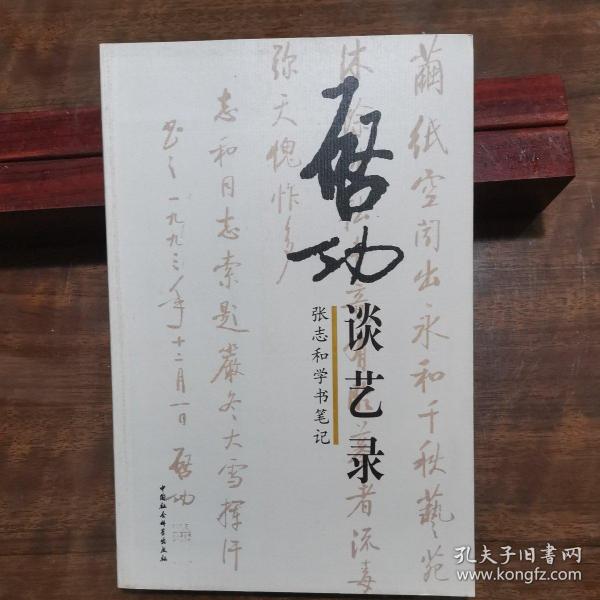 启功
谈艺录
张志和学书笔记
茧纸空闻出永和千秋艺苑
沐
者流毒
弥天愧怍多
志和同志索题严冬大雪挥汗
书之一九九三年十二月一日启功
中国社会科学出版社
孔夫子旧书网
www.kongfz.com